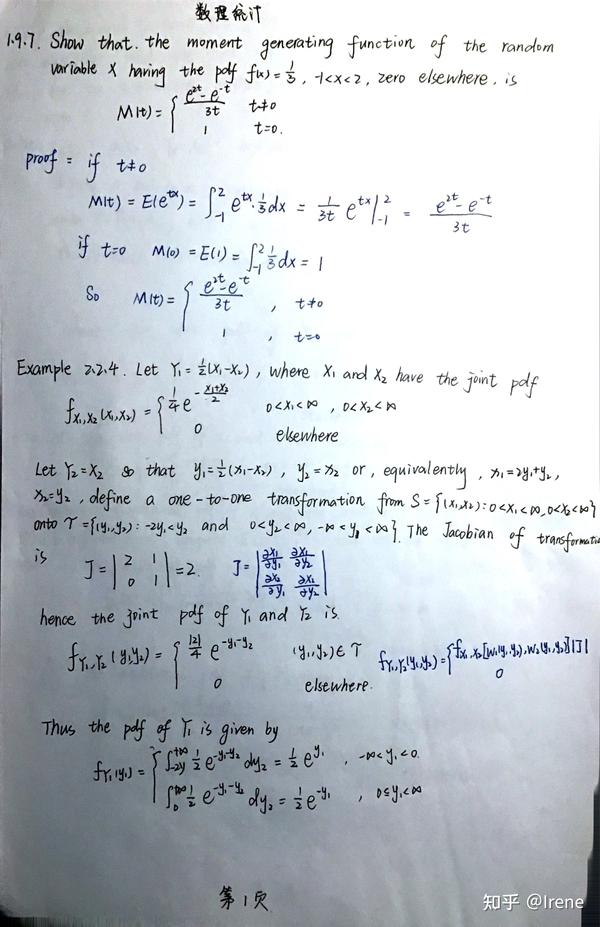 数理统计
1.9.7. Show that. the moment generating function of the random
variable X having the pdf f(x)=1/3, -1<x<2, zero elsewhere, is
M(t)= { (e^{2t}-e^{-t})/3t   t≠0
1   t=0.
proof = if t≠0
M(t) = E(e^{tx}) = ∫_{-1}^{2} e^{tx}·1/3 dx = 1/3t e^{tx}|_{-1}^{2} = (e^{2t}-e^{-t})/3t
if t=0 M(0)=E(1)=∫_{-1}^{2} 1/3 dx = 1
So M(t)= { (e^{2t}-e^{-t})/3t , t≠0
1 , t=0
Example 2.2.4. Let Y₁=½(X₁-X₂), where X₁ and X₂ have the joint pdf
f_{X₁,X₂}(x₁,x₂) = { 1/4 e^{-(x₁+x₂)/2}   0<x₁<∞, 0<x₂<∞
0   elsewhere
Let Y₂=X₂ so that y₁=½(x₁-x₂), y₂=x₂ or, equivalently, x₁=2y₁+y₂,
x₂=y₂, define a one-to-one transformation from S={(x₁,x₂):0<x₁<∞,0<x₂<∞}
onto T={(y₁,y₂):-2y₁<y₂ and 0<y₂<∞, -∞<y₁<∞}. The Jacobian of transformatio
is J=|2 1; 0 1|=2. J=|∂x₁/∂y₁ ∂x₁/∂y₂; ∂x₂/∂y₁ ∂x₂/∂y₂|
hence the joint pdf of Y₁ and Y₂ is.
f_{Y₁,Y₂}(y₁,y₂) = { |2|/4 e^{-y₁-y₂}   (y₁,y₂)∈T   f_{Y₁,Y₂}(y₁,y₂)={ f_{X₁,X₂}[w₁(y₁,y₂),w₂(y₁,y₂)]|J|
0   elsewhere.   0
Thus the pdf of Y₁ is given by
f_{Y₁}(y₁)= { ∫_{-2y}^{+∞} ½ e^{-y₁-y₂} dy₂ = ½ e^{y₁} , -∞<y₁<0.
∫_{0}^{+∞} ½ e^{-y₁-y₂} dy₂ = ½ e^{-y₁} , 0≤y₁<∞
第1页
知乎 @Irene